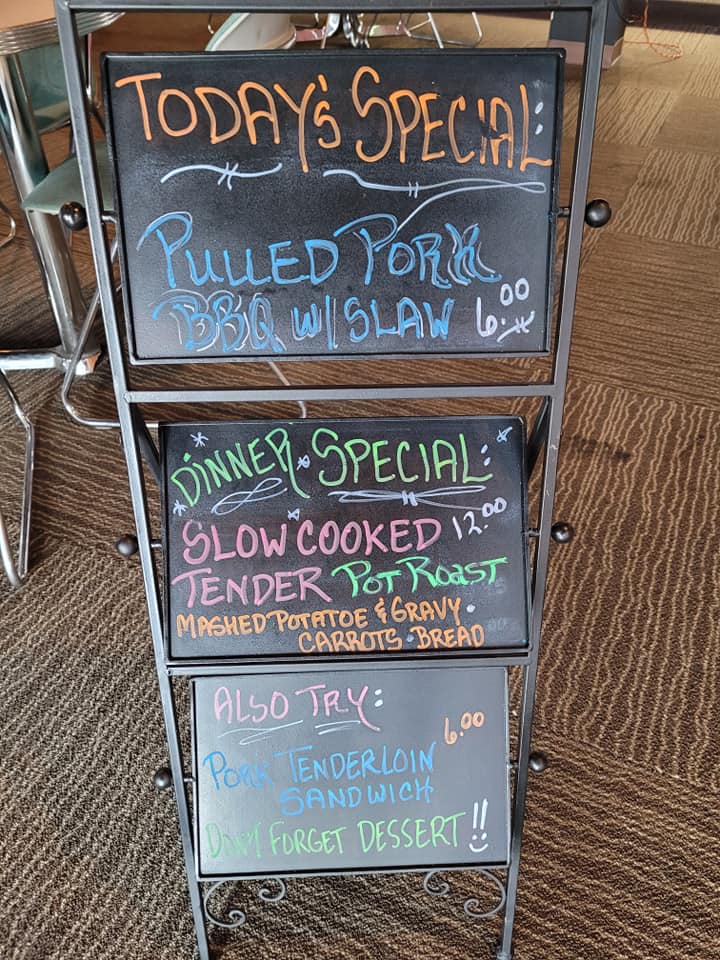 TODAY'S SPECIAL:
PULLED PORK
BBQ W/SLAW 6.00
DINNER SPECIAL:
SLOW COOKED 12.00
TENDER POT ROAST
MASHED POTATOE & GRAVY.
CARROTS. BREAD
ALSO TRY:
6.00
PORK TENDERLOIN
SANDWICH
DON'T FORGET DESSERT!!